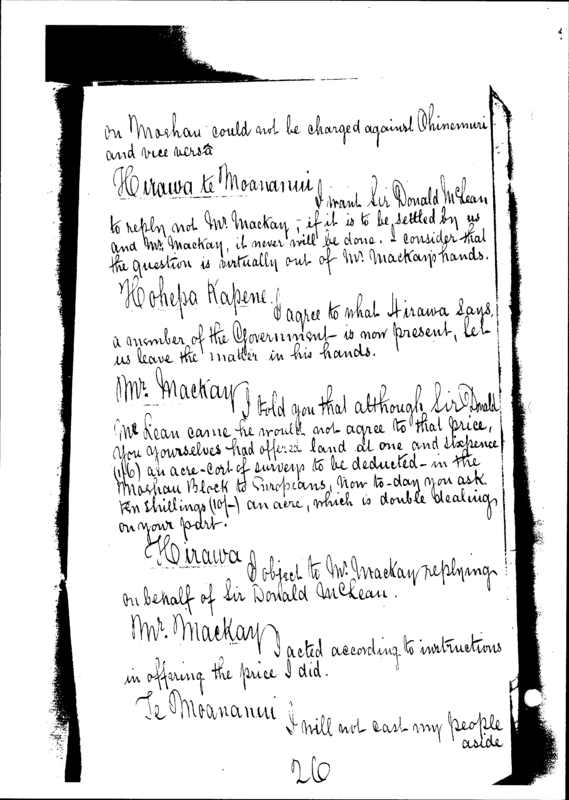 on Moehau could not be charged against Ohinemuri
and vice versâ
Hirawa te Moananui
I want Sir Donald McLean
to reply not Mr. Mackay, if it is to be settled by us
and Mr. Mackay, it never will be done. I consider that
the question is virtually out of Mr. Mackay's hands.
Hohepa Kapene.
I agree to what Hirawa says,
a member of the Government is now present, let
us leave the matter in his hands.
Mr. Mackay
I told you that although Sir Donald
McLean came he would not agree to that price,
You yourselves had offered land at one and sixpence
(1/6) an acre - cost of surveys to be deducted - in the
Moehau Block to Europeans, Now to-day you ask
ten shillings (10/-) an acre, which is double dealing
on your part.
Hirawa
I object to Mr. Mackay replying
on behalf of Sir Donald McLean.
Mr. Mackay
I acted according to instructions
in offering the price I did.
Te Moananui
I will not cast my people
aside
26